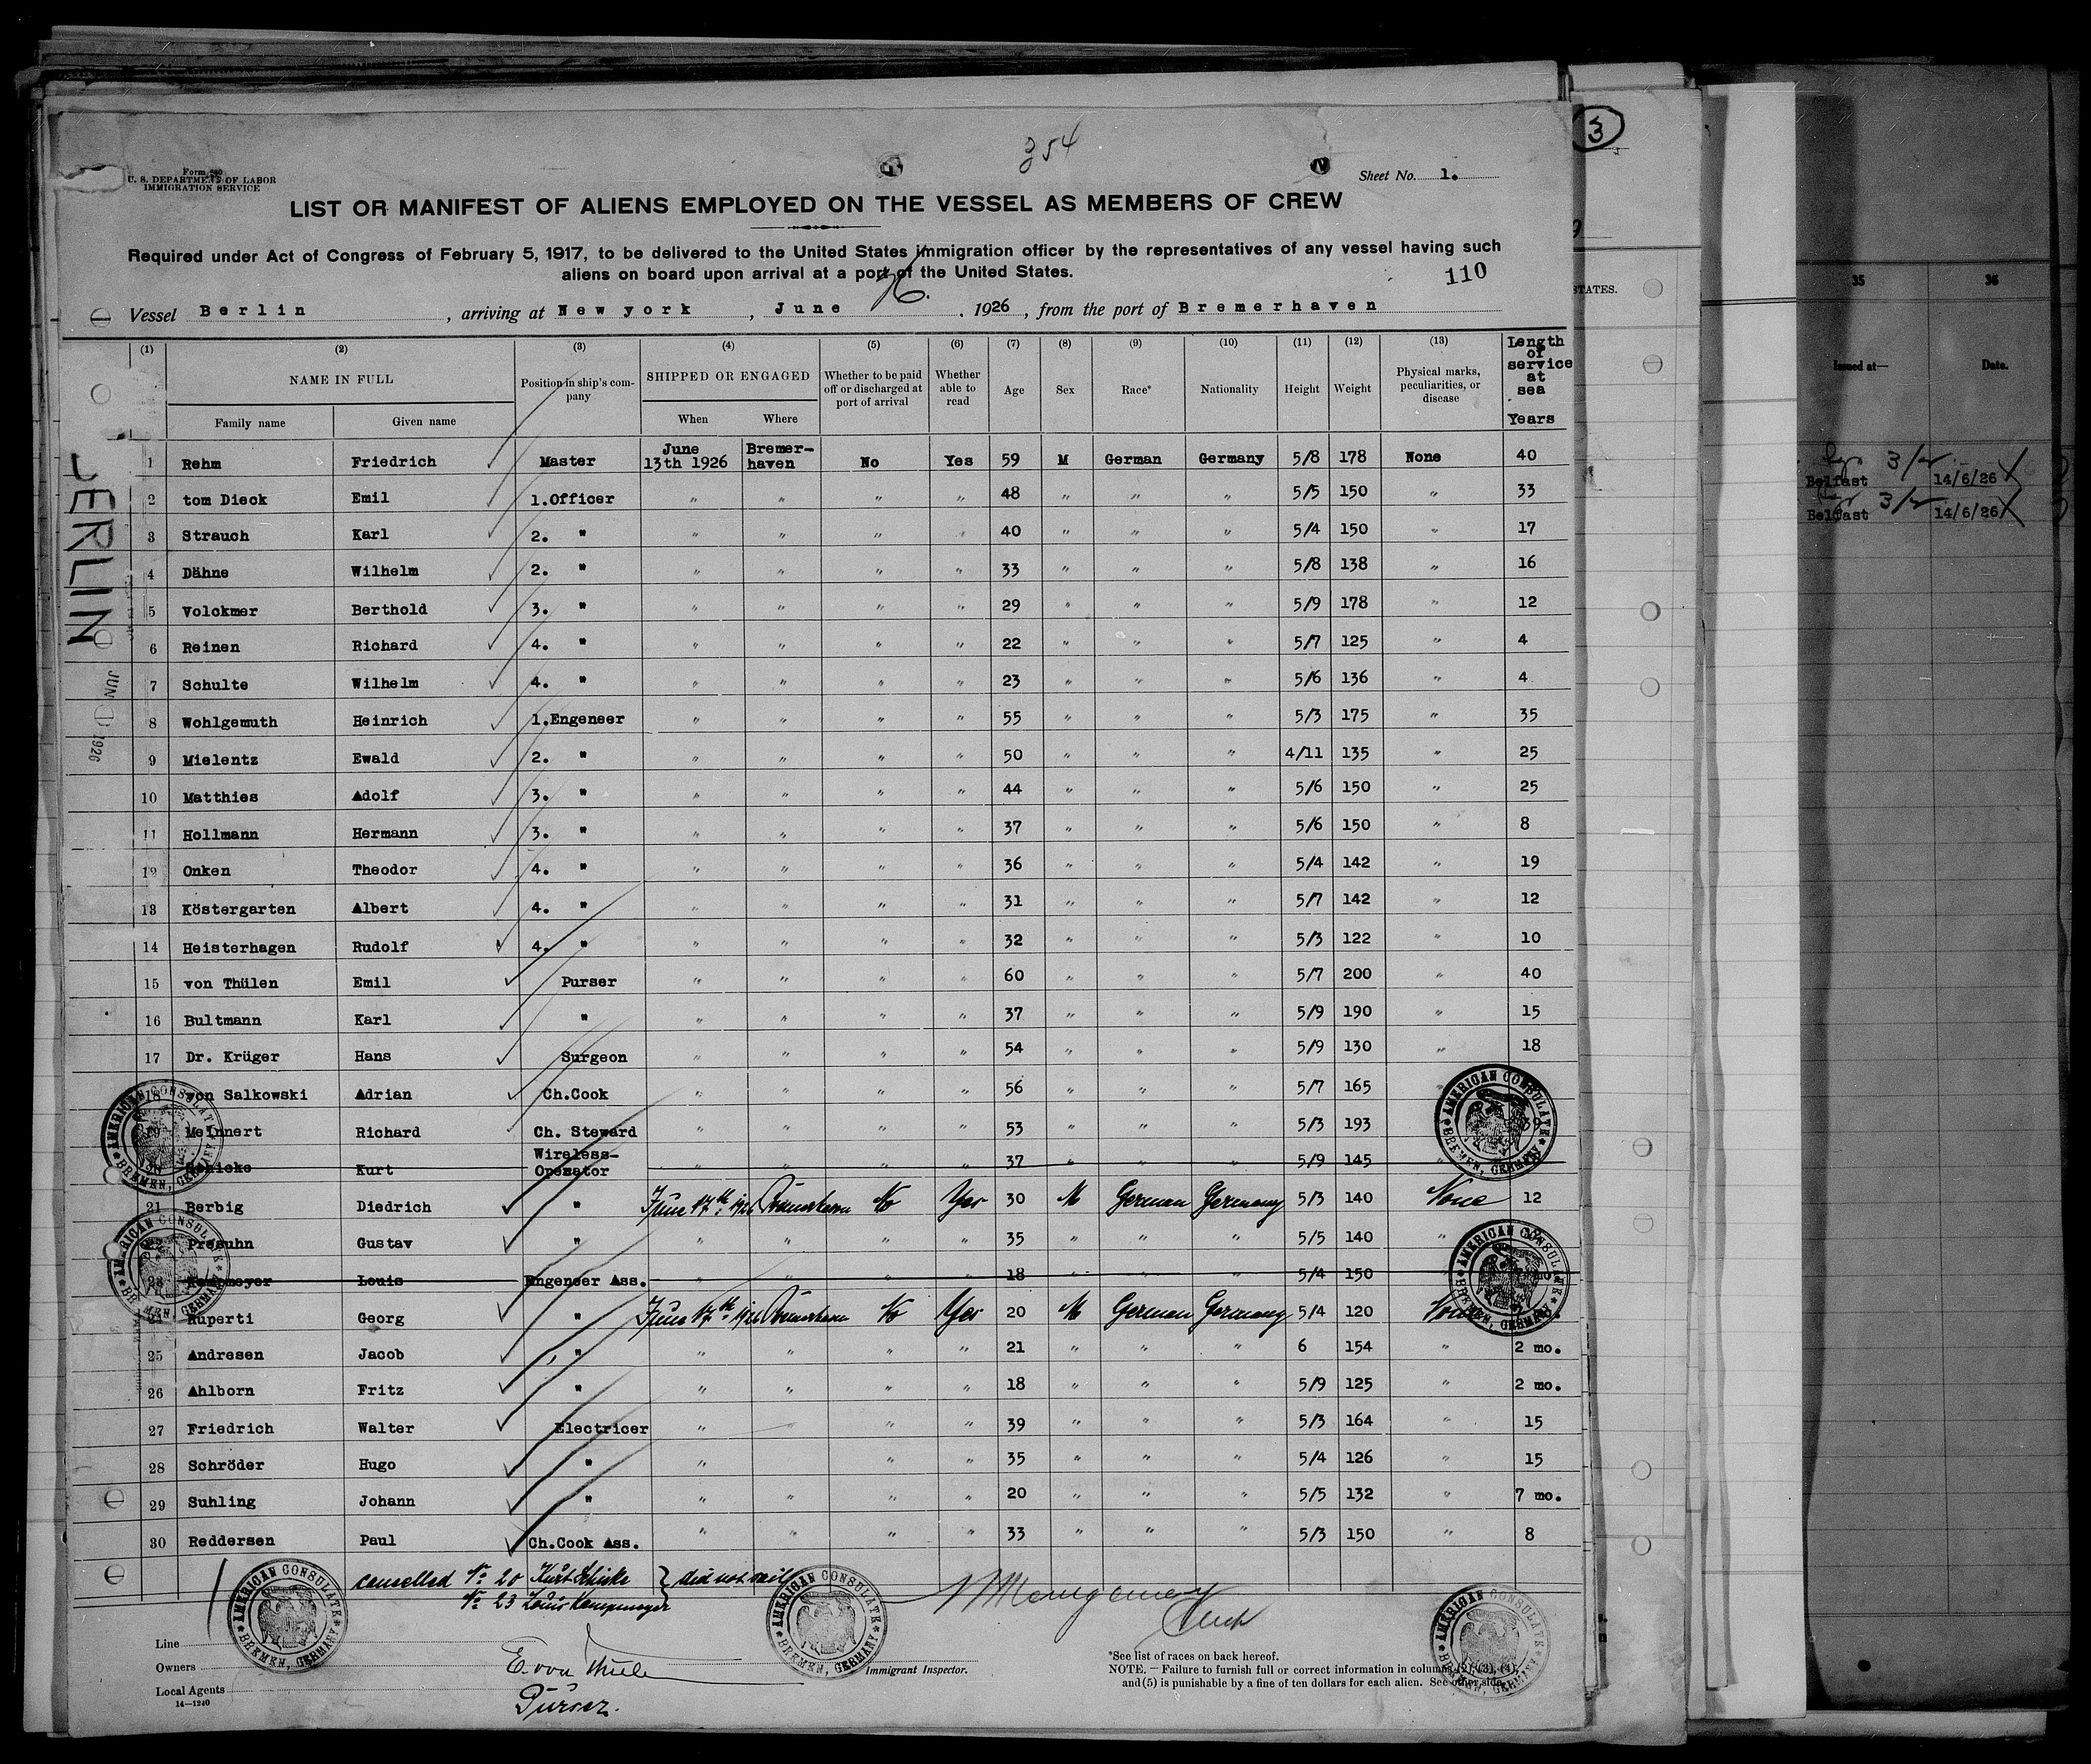 354
3
Form 680
U. S. DEPARTMENT OF LABOR
IMMIGRATION SERVICE
Sheet No. 1.
LIST OR MANIFEST OF ALIENS EMPLOYED ON THE VESSEL AS MEMBERS OF CREW
Required under Act of Congress of February 5, 1917, to be delivered to the United States immigration officer by the representatives of any vessel having such
aliens on board upon arrival at a port of the United States.
110
Vessel Berlin, arriving at New york, June 26. 1926, from the port of Bremerhaven
(1) (2) (3) (4) (5) (6) (7) (8) (9) (10) (11) (12) (13) Length of service at sea Years
NAME IN FULL Position in ship's company SHIPPED OR ENGAGED Whether to be paid off or discharged at port of arrival Whether able to read Age Sex Race* Nationality Height Weight Physical marks, peculiarities, or disease
Family name Given name When Where
1 Rehm Friedrich Master June 13th 1926 Bremerhaven No Yes 59 M German Germany 5/8 178 None 40
2 tom Dieck Emil 1.Officer " " " " 48 " " " 5/5 150 " 33
3 Strauch Karl 2. " " " " " 40 " " " 5/4 150 " 17
4 Dähne Wilhelm 2. " " " " " 33 " " " 5/8 138 " 16
5 Volckmer Berthold 3. " " " " " 29 " " " 5/9 178 " 12
6 Reinen Richard 4. " " " " " 22 " " " 5/7 125 " 4
7 Schulte Wilhelm 4. " " " " " 23 " " " 5/6 136 " 4
8 Wohlgemuth Heinrich 1.Engeneer " " " " 55 " " " 5/3 175 " 35
9 Mielentz Ewald 2. " " " " " 50 " " " 4/11 135 " 25
10 Matthies Adolf 3. " " " " " 44 " " " 5/6 150 " 25
11 Hollmann Hermann 3. " " " " " 37 " " " 5/6 150 " 8
12 Onken Theodor 4. " " " " " 36 " " " 5/4 142 " 19
13 Köstergarten Albert 4. " " " " " 31 " " " 5/7 142 " 12
14 Heisterhagen Rudolf 4. " " " " " 32 " " " 5/3 122 " 10
15 von Thülen Emil Purser " " " " 60 " " " 5/7 200 " 40
16 Bultmann Karl " " " " " 37 " " " 5/9 190 " 15
17 Dr. Krüger Hans Surgeon " " " " 54 " " " 5/9 130 " 18
18 von Salkowski Adrian Ch.Cook " " " " 56 " " " 5/7 165 "
19 Meinnert Richard Ch. Steward " " " " 53 " " " 5/3 193 39
20 Schicke Kurt Wireless-Operator " " " " 37 " " " 5/9 145 "
21 Berbig Diedrich " June 17th 1926 Bremerhaven No Yes 30 M German Germany 5/3 140 None 12
22 Presuhn Gustav " " " " " 35 " " " 5/5 140 "
23 Kampmeyer Louis Engeneer Ass. " " " " 18 " " " 5/4 150 mo.
24 Ruperti Georg " June 17th 1926 Bremerhaven No Yes 20 M German Germany 5/4 120 None
25 Andresen Jacob " " " " " 21 " " " 6 154 " 2 mo.
26 Ahlborn Fritz " " " " " 18 " " " 5/9 125 " 2 mo.
27 Friedrich Walter Electricer " " " 39 " " " 5/3 164 " 15
28 Schröder Hugo " " " " 35 " " " 5/4 126 " 15
29 Suhling Johann " " " " " 20 " " " 5/5 132 " 7 mo.
30 Reddersen Paul Ch.Cook Ass. " " " " 33 " " " 5/3 150 " 8
BERLIN
JUN 1926
AMERICAN CONSULATE BREMEN, GERMANY
AMERICAN CONSULATE BREMEN, GERMANY
AMERICAN CONSULATE BREMEN, GERMANY
AMERICAN CONSULATE BREMEN, GERMANY
cancelled No 20 Kurt Schicke } did not sail
No 23 Louis Kampmeyer
AMERICAN CONSULATE BREMEN, GERMANY
AMERICAN CONSULATE BREMEN, GERMANY
AMERICAN CONSULATE BREMEN, GERMANY
Line
Owners
Local Agents
14—1240
E. von Thülen
Purser.
Immigrant Inspector.
*See list of races on back hereof.
NOTE.—Failure to furnish full or correct information in columns (2), (3), (4),
and (5) is punishable by a fine of ten dollars for each alien. See other side.
STATES.
35 36
Issued at— Date.
3/
Belfast 14/6/26
3/
Belfast 14/6/26